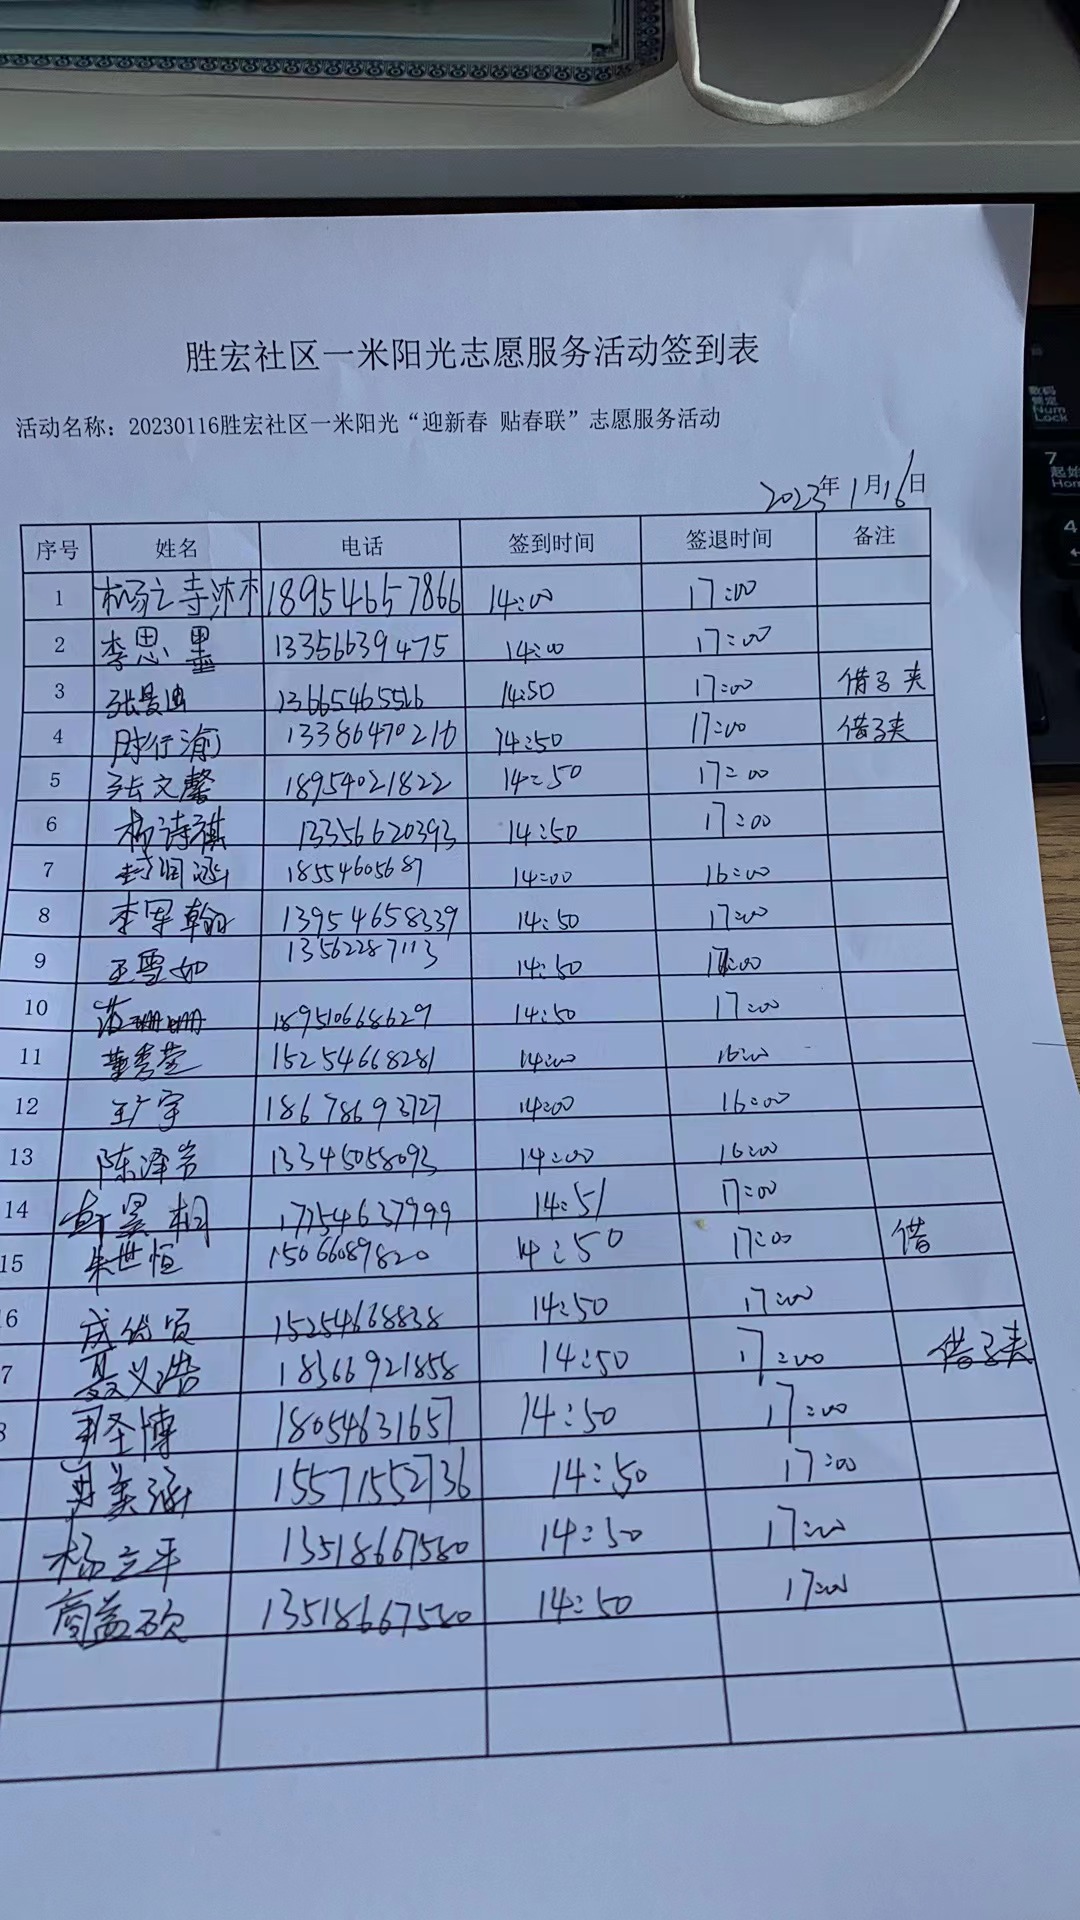 胜宏社区一米阳光志愿服务活动签到表
活动名称：20230116胜宏社区一米阳光“迎新春 贴春联”志愿服务活动
2023年1月16日
序号 姓名 电话 签到时间 签退时间 备注
1 18954657866 14:00 17:00
2 李思墨 13356639475 14:00 17:00
3 13665465526 14:50 17:00 借了夹
4 时行渝 13386470216 14:50 17:00 借了夹
5 张文馨 18954021822 14:50 17:00
6 杨诗祺 13356620393 14:50 17:00
7 封润涵 18554605687 14:00 16:00
8 李军翰 13954658339 14:50 17:00
9 王雪如 13562287113 14:50 17:00
10 范珊珊 189510668629 14:50 17:00
11 董秀莲 15254668281 14:00 16:00
12 王广宇 18678693727 14:00 16:00
13 陈泽岩 13345058093 14:00 16:00
14 17754637999 14:51 17:00
15 朱世恒 15066089820 14:50 17:00 借
6 成优贡 15254668838 14:50 17:00
7 聂义浩 18366921858 14:50 17:00 借了夹
8 尹圣博 18054631657 14:50 17:00
15571552736 14:50 17:00
杨立平 13518667580 14:50 17:00
商益硕 13518667580 14:50 17:00
数码
锁定
Num
Lock
7
起始
Hom
4